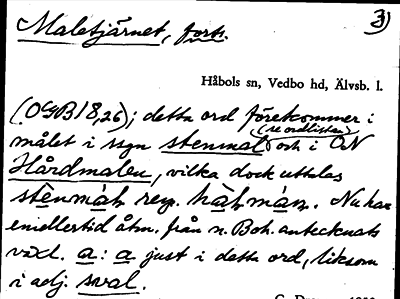 Maletjärnet, forts. 3)
Håbols sn, Vedbo hd, Älvsb. l.
(OGB 18,26); detta ord förekommer i
(se ordlistan)
målet i ssgn stenmal och i ON
Hårdmalen, vilka dock uttalas
stènmàh resp. hàhmán. Nu har
emellertid åtm. från n. Boh. antecknats
växl. a : a just i detta ord, liksom
i adj. sval.